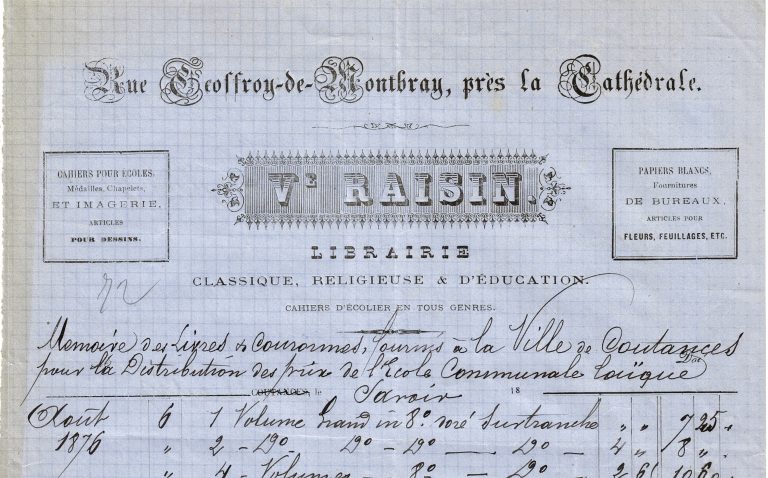 Rue Geoffroy-de-Montbray, près la Cathédrale.
CAHIERS POUR ECOLES,
Médailles, Chapelets,
ET IMAGERIE,
ARTICLES
POUR DESSINS.
Vᵉ RAISIN.
PAPIERS BLANCS,
Fournitures
DE BUREAUX,
ARTICLES POUR
FLEURS, FEUILLAGES, ETC.
LIBRAIRIE
CLASSIQUE, RELIGIEUSE & D'ÉDUCATION.
CAHIERS D'ÉCOLIER EN TOUS GENRES.
72
Memoire des Livres & Couronnes, fournis à la Ville de Coutances
pour la Distribution des prix de l'Ecole Communale Laïque
COUTANCES, le Savoir 18
Août 6 1 Volume Grand in 8º doré Surtranche " " 7 25 "
1876 " 2 - dº dº - dº - dº - 4 " 8 "
" 4 - Volumes - 8º - dº - 2 6 10 60